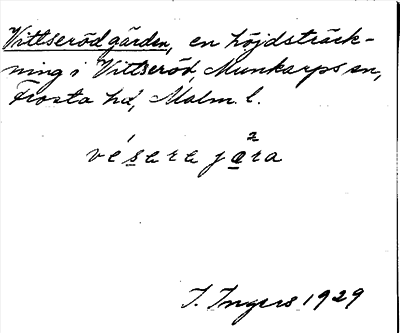 Vittseröd gärden, en höjdsträck-
ning i Vittseröd, Munkarps sn,
Frosta hd, Malm. l.
vésara jära
I. Ingers 1929